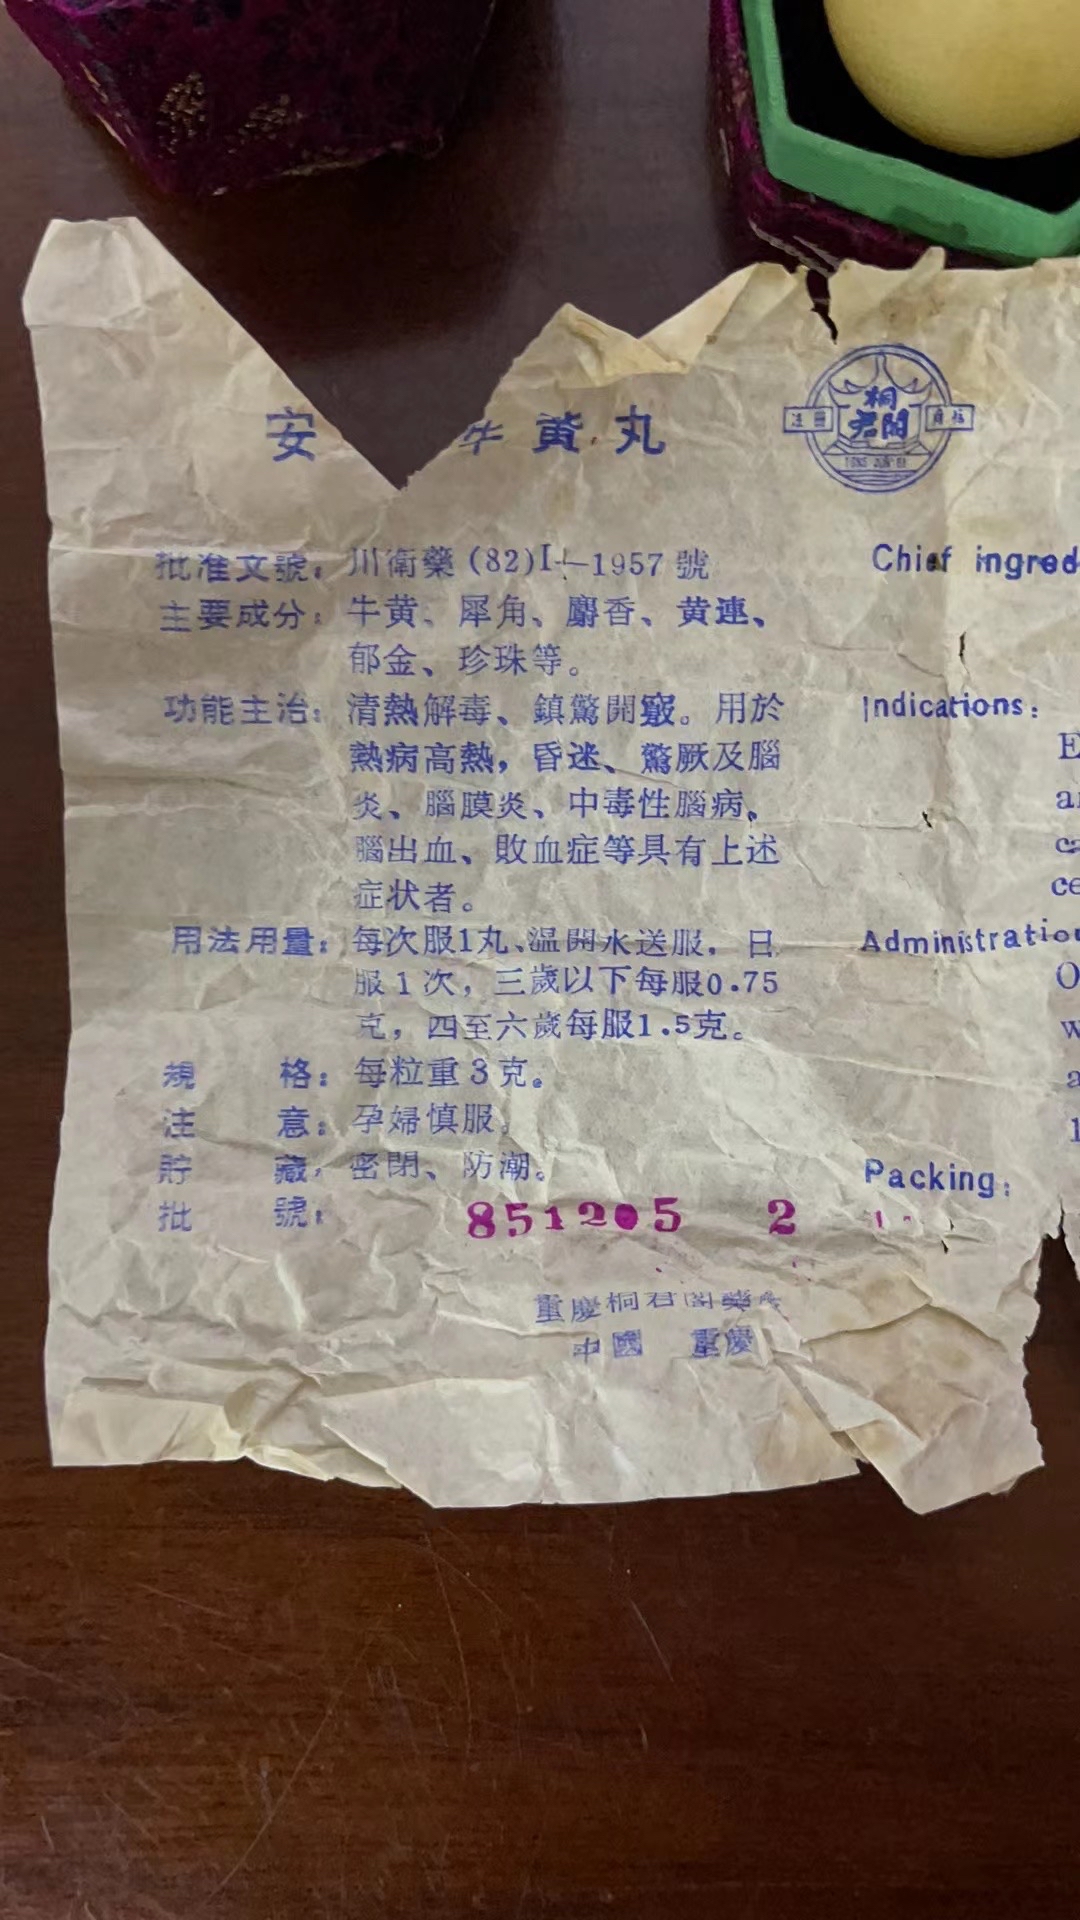 安 牛黄丸
桐
君閣
注冊
商标
批准文號：川衛藥(82)I—1957號
主要成分：牛黄、犀角、麝香、黄連、
郁金、珍珠等。
功能主治：清熱解毒、鎮驚開竅。用於
熱病高熱，昏迷、驚厥及腦
炎、腦膜炎、中毒性腦病、
腦出血、敗血症等具有上述
症状者。
用法用量：每次服1丸、温開水送服，日
服1次，三歲以下每服0.75
克，四至六歲每服1.5克。
規 格：每粒重3克。
注 意：孕婦慎服。
貯 藏：密閉、防潮。
批 號：851205 2
重慶桐君閣藥
中國 重慶
Chief ingred
Indications:
E
a
ca
ce
Administratio
O
w
a
1
Packing: